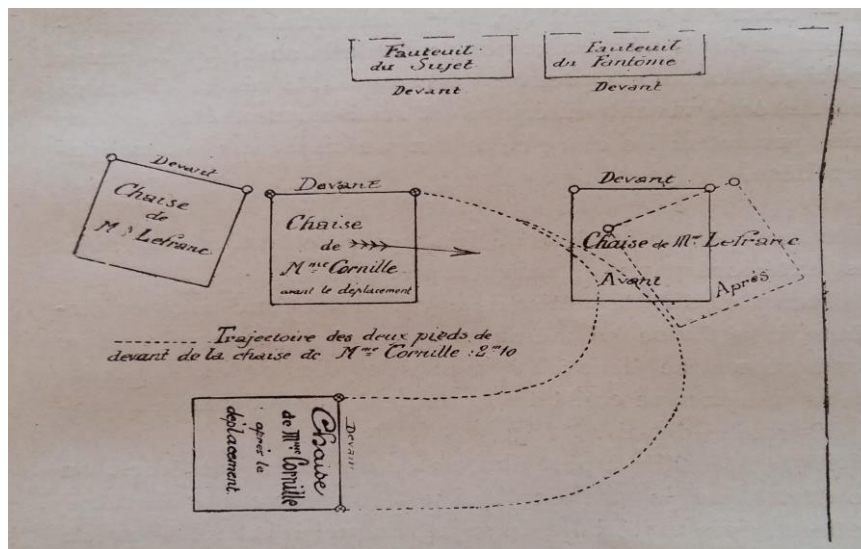 Fauteuil
du Sujet
Devant
Fauteuil
du Fantôme
Devant
Devant
Chaise
de
Lefranc
Devant
Chaise
de
Mme Cornille
avant le déplacement
Devant
Chaise de Mr Lefranc
Avant
Après
Trajectoire des deux pieds de
devant de la chaise de Mme Cornille : 2m10
Chaise
de Mme Cornille
après le
déplacement.
Devant